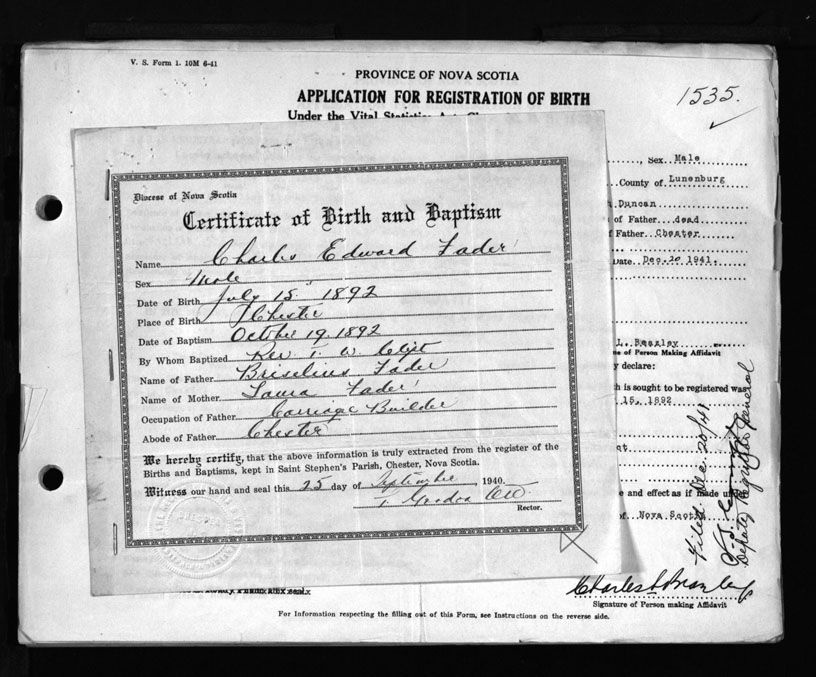 V. S. Form 1. 10M 6-41
PROVINCE OF NOVA SCOTIA
APPLICATION FOR REGISTRATION OF BIRTH
1535.
Under the Vital Statistics Act,
Sex Male
County of Lunenburg
Duncan
of Father dead
Father Chester
Date Dec. 20 1941.
L. Beazley
of Person Making Affidavit
declare:
is sought to be registered was
15, 1892
and effect as if made under
of Nova Scotia
Filed Dec. 20/41
Deputy Registrar General
Diocese of Nova Scotia
Certificate of Birth and Baptism
Name Charles Edward Fader
Sex Male
Date of Birth July 15 1892
Place of Birth Chester
Date of Baptism October 19 1892
By Whom Baptized Rev.
Name of Father Briselius Fader
Name of Mother Laura Fader
Occupation of Father Carriage Builder
Abode of Father Chester
We hereby certify, that the above information is truly extracted from the register of the
Births and Baptisms, kept in Saint Stephen's Parish, Chester, Nova Scotia.
Witness our hand and seal this 25 day of September, 1940.
T. Gordon
Rector.
Charles L Beazley
Signature of Person making Affidavit
For Information respecting the filling out of this Form, see Instructions on the reverse side.